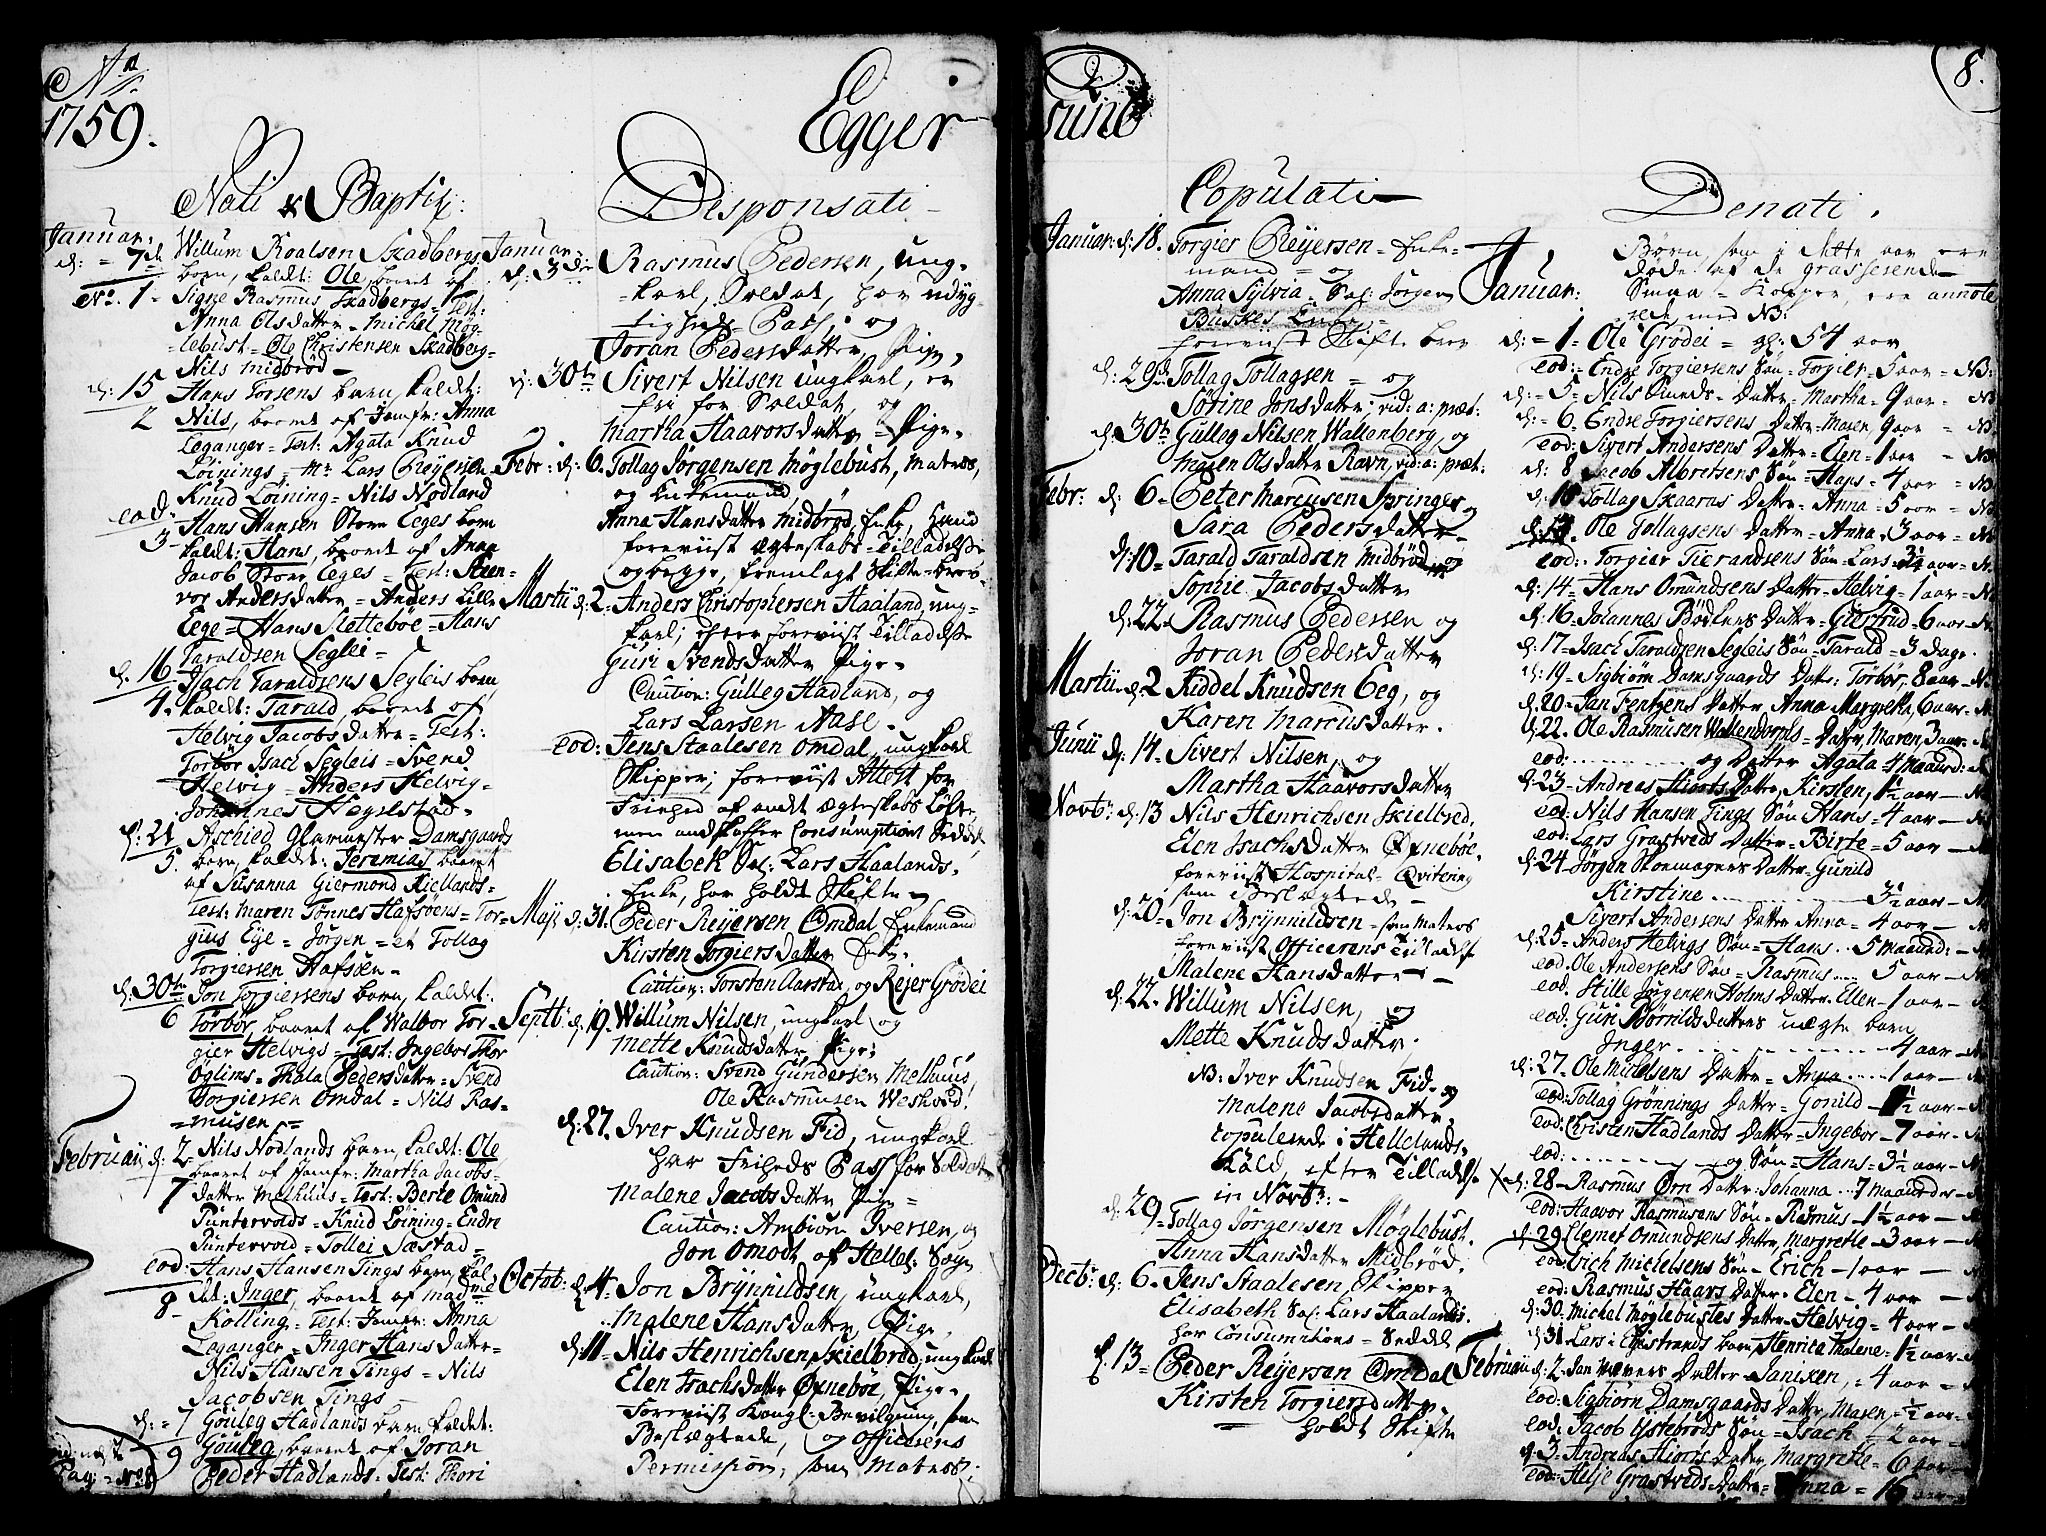 1759.
Egger
sund
8.
Nati & Baptiz:
Januar:
d: 7de Willum Roalsen Skadbergs
barn, kaldt: Ole, baaret af
No. 1 - Signe Rasmus Skadbergs = Test:
Anna Olsdatter - Michel Mög-
lebust = Ole Christensen Skadberg =
Nils Midbröd -
d: 15 Hans Torsens barn, kaldt:
2 Nils, baaret af Jomfr: Anna
Leganger = Test: Agata Knud
Löinings = Mr. Lars Reyersen
Knud Löining = Nils Nodland
eod: Hans Hansen Store Eeges barn
3 kaldt: Hans, baaret af Anna
Jacob Store Eeges = Test: Steen=
vor Andersdatter = Anders Lille
Eege = Hans Sletteböe = Hans
Taraldsen Seglei =
d: 16 Isach Taraldsens Segleis barn,
4. kaldt: Tarald, baaret af
Helvig Jacobsdatter = Test:
Torbör Isach Segleis = Svend
Helvig = Anders Helvig =
Johannes Hegelstad =
d: 21 Aschied Glarmester Damsgaards
5. barn, kaldt: Jeremias baaret
af Susanna Giermond Kiellands =
Test: Maren Tönnes Hafsöens = Tor=
gius Eye = Jörgen = et Tollag
Torgiersen Hafsöen -
d: 30te Jon Torgiersens barn, kaldet:
6 Törbör, baaret af Walbor Tor-
gier Helvigs = Test: Ingebor Thor
Oglims = Thala Pedersdatter = Svend
Torgiersen Omdal = Nils Ras=
=musen =
Februarii d: 2 - Nils Nodlands barn, kaldt: Ole
baaret af Jomfr: Martha Jacobs-
7 datter Melhuus = Test: Berte Omund
Puntervolds = Knud Löining = Endre
Puntervold = Tollei Sæstad =
eod: Hans Hansen Tings barn, kal-
8 det: Inger, baaret af Madme
Kolling = Test: Jomfr: Anna
Leganger = Inger Hansdatter =
Nils Hansen Tings = Nils
Jacobsen Tings -
d: = 7 Gouleg Hadlands barn kaldet:
9 Gouleg, baaret af Joran
Peder Hadlands = Test: Thori
Desponsati -
Januar:
d: 3die Rasmus Pedersen, ung=
=karl, Soldat, har udyg-
tigheds Pass; og
Joran Pedersdatter, Pige,
d: 30te Sivert Nilsen ungkarl, er
fri for Soldat, og
Martha Haavorsdatter = Pige.
Febr: d: 6. Tollag Jörgensen Möglebust, Matros,
og Enkemand,
Anna Hansdatter Midbröd, Enke, Hand
foreviist Ægteskabs-Tilladelse
og begge, fremlagt Skifte-brev.
Martii d: 2 - Anders Christophersen Haaland, ung-
karl; efter foreviist Tilladelse
Guri Svendsdatter Pige -
Caution: Gulleg Hadland, og
Lars Larsen Aase -
eod: Jens Staalesen Omdal, ungkarl
Skipper; foreviist Attest for
Friehed af andt Ægteskabs Löfte,
men andskaffer Consumptions Seddel
Elisabek Sal: Lars Haalands,
Enke, har holdt Skifte -
Maji d: 31. Peder Reyersen Omdal Enkemand
Kirsten Torgiersdatter Enke.
Caution: Torsten Aarstax, og Rejer Grödei
Septb: d: 19. Willum Nilsen, ungkarl og
Mette Knudsdatter, Pige;
Caution: Svend Gundersen Melhuus,
Ole Rasmusen Weshvod.
d: 27. Iver Knudsen Fid, ungkarl
har Friheds Pass for Soldat
Malene Jacobsdatter Pige =
Caution: Ambiörn Iversen, og
Jon Omodt af Hellel: Sogn
Octob: d: 4 - Jon Brynnildsen, ungkarl,
Malene Hansdatter, Pige,
d: 11 - Nils Henrichsen Skielbred, ungkarl
Elen Isachsdatter Öxneböe, Pige,
Foreviist Kongl: Bevilgning, som
Beslægtede, og Officerens
Permission, som Matros;
Copulati -
Januar: d: 18. Torgier Reyersen = Enke-
mand = og
Anna Sylvia Sal: Jörgen
Buskes Enke,
foreviist Skifte brev
d: 29de Tollag Tollagsen = og
Sörine Jonsdatter, vid: a: præt:
d: 30te Gulleg Nilsen Wallenberg, og
Maren Olsdatter Ravn, vid: a: præt:
Febr: d: 6 - Peter Marcusen Springer, og
Sara Pedersdatter -
d: 10 - Tarald Taraldsen Midbröd, og
Sophie Jacobsdatter
d: 22. Rasmus Pedersen og
Joran Pedersdatter
Martii d: 2 Kiddel Knudsen Eeg, og
Karen Marcusdatter.
Junii d: 14 - Sivert Nilsen, og
Martha Haavorsdatter
Novb: d: 13 Nils Henrichsen Skielbred,
Elen Isachsdatter Öxneböe,
foreviist Hospital = Qvitering
som Beslægtede -
d: 20 - Jon Brynnildsen - som Matros
foreviist Officerens Tilladelse
Malene Hansdatter -
d: 22. Willum Nilsen, og
Mette Knudsdatter.
NB: Iver Knudsen Fid - og
Malene Jacobsdatter,
copulerede i Hellelands-
Kald, efter Tilladelse
in Novb: -
d: 29 = Tollag Jörgensen Möglebust.
Anna Hansdatter Midbröd.
Decb: d: 6 - Jens Staalesen, Skipper
Elisabeth Sal: Lars Haalands.
har Consumtions = Seddel
d: 13 = Peder Reyersen Omdal
Kirsten Torgiersdatter,
holdt Skifte
Denati.
Börn, som i dette aar ere
döde af de grasserende
Smaa = Kopper, ere annote
rede med NB:
Januar:
d: - 1 = Ole Grödei = gl: 54 aar
eod: = Endre Torgiersens Sön = Torgier = 5 aar = NB:
d: - 5 - Nils Datter = Martha = 9 aar -
d: - 6. Endre Torgiersens Datter = Maren, 9 aar =
eod: Sivert Andersens Datter = Elen = 1 aar
d: 8 Jacob Albretsens Sön = Hans = 4 aar =
d: 10 Tollag Skaaras Datter = Anna = 5 aar =
d: 13. Ole Tollagsens Datter = Anna = 3 aar =
eod: Torgier Tierandsens Sön = Lars 3½ aar =
d: 14 = Hans Omundsens Datter = Helvig = 1 aar =
d: 16. Johannes Bödkers Datter = Giertrud = 6 aar =
d: 17 = Isach Taraldsen Segleis Sön = Tarald = 3 Dage.
d: 19 = Sigbiörn Damsgaards Datt: Törbör, 8 aar =
d: 20 = Jan Fentzens Datter, Anna Margreta, 6 aar =
d: 22. Ole Rasmusen Wallendorphs = Datter, Maren, 3 aar =
eod: og Datter Agata 4 Maaned:
d: 23 = Andreas Hiorts Datter, Kirsten, 1½ aar -
eod: Nils Hansen Tings Sön Hans = 4 aar -
eod: Lars Grastveds Datter = Birte = 5 aar -
d: 24 Jörgen Skomagers Datter = Gunild
Kirstine 3½ aar -
Sivert Andersens Datter Anna = 4 aar -
d: 25 = Anders Helvigs Sön = Hans .. 5 Maaned: -
eod: Ole Andersens Sön = Rasmus .... 5 aar -
eod: Stille Jörgensen Holms Datter = Ellen = 1 aar -
eod: Guri Borrildsdatters uægte barn
Inger 4 aar -
d: 27. Ole Michelsens Datter = Anna .... 1 aar -
eod: Tollag Grönnings Datter = Gonild - 1½ aar -
eod: Christen Hadlands Datter = Ingebor - 7 aar -
eod: og Sön = Hans = 3½ aar -
d: 28 - Rasmus Örn Datter: Johanna ... 7 Maaneder -
eod: Haavor Rasmusens Sön = Rasmus - 1½ aar -
d: 29 Clemet Omundsens Datter, Margrethe - 3 aar -
eod: Erich Michelsens Sön - Erich - 1 aar -
eod: Rasmus Haars Datter - Elen - 4 aar -
d: 30. Michel Möglebustes Datter - Helvig - 4 aar -
d: 31. Lars i Egistrands barn, Henrica Thalene = 1½ aar -
Februarii d: 2 - Jan Wævers Datter = Janiken, = 4 aar =
eod: Sigbiörn Damsgaards Datter, Maren, = ½ aar =
eod: Jacob Ystebröds Sön = Isach = 2 aar =
d: 3. Andreas Hiorts Datter, Margrethe = 6 aar -
eod: Helje Grastveds Datter = Anna = 16